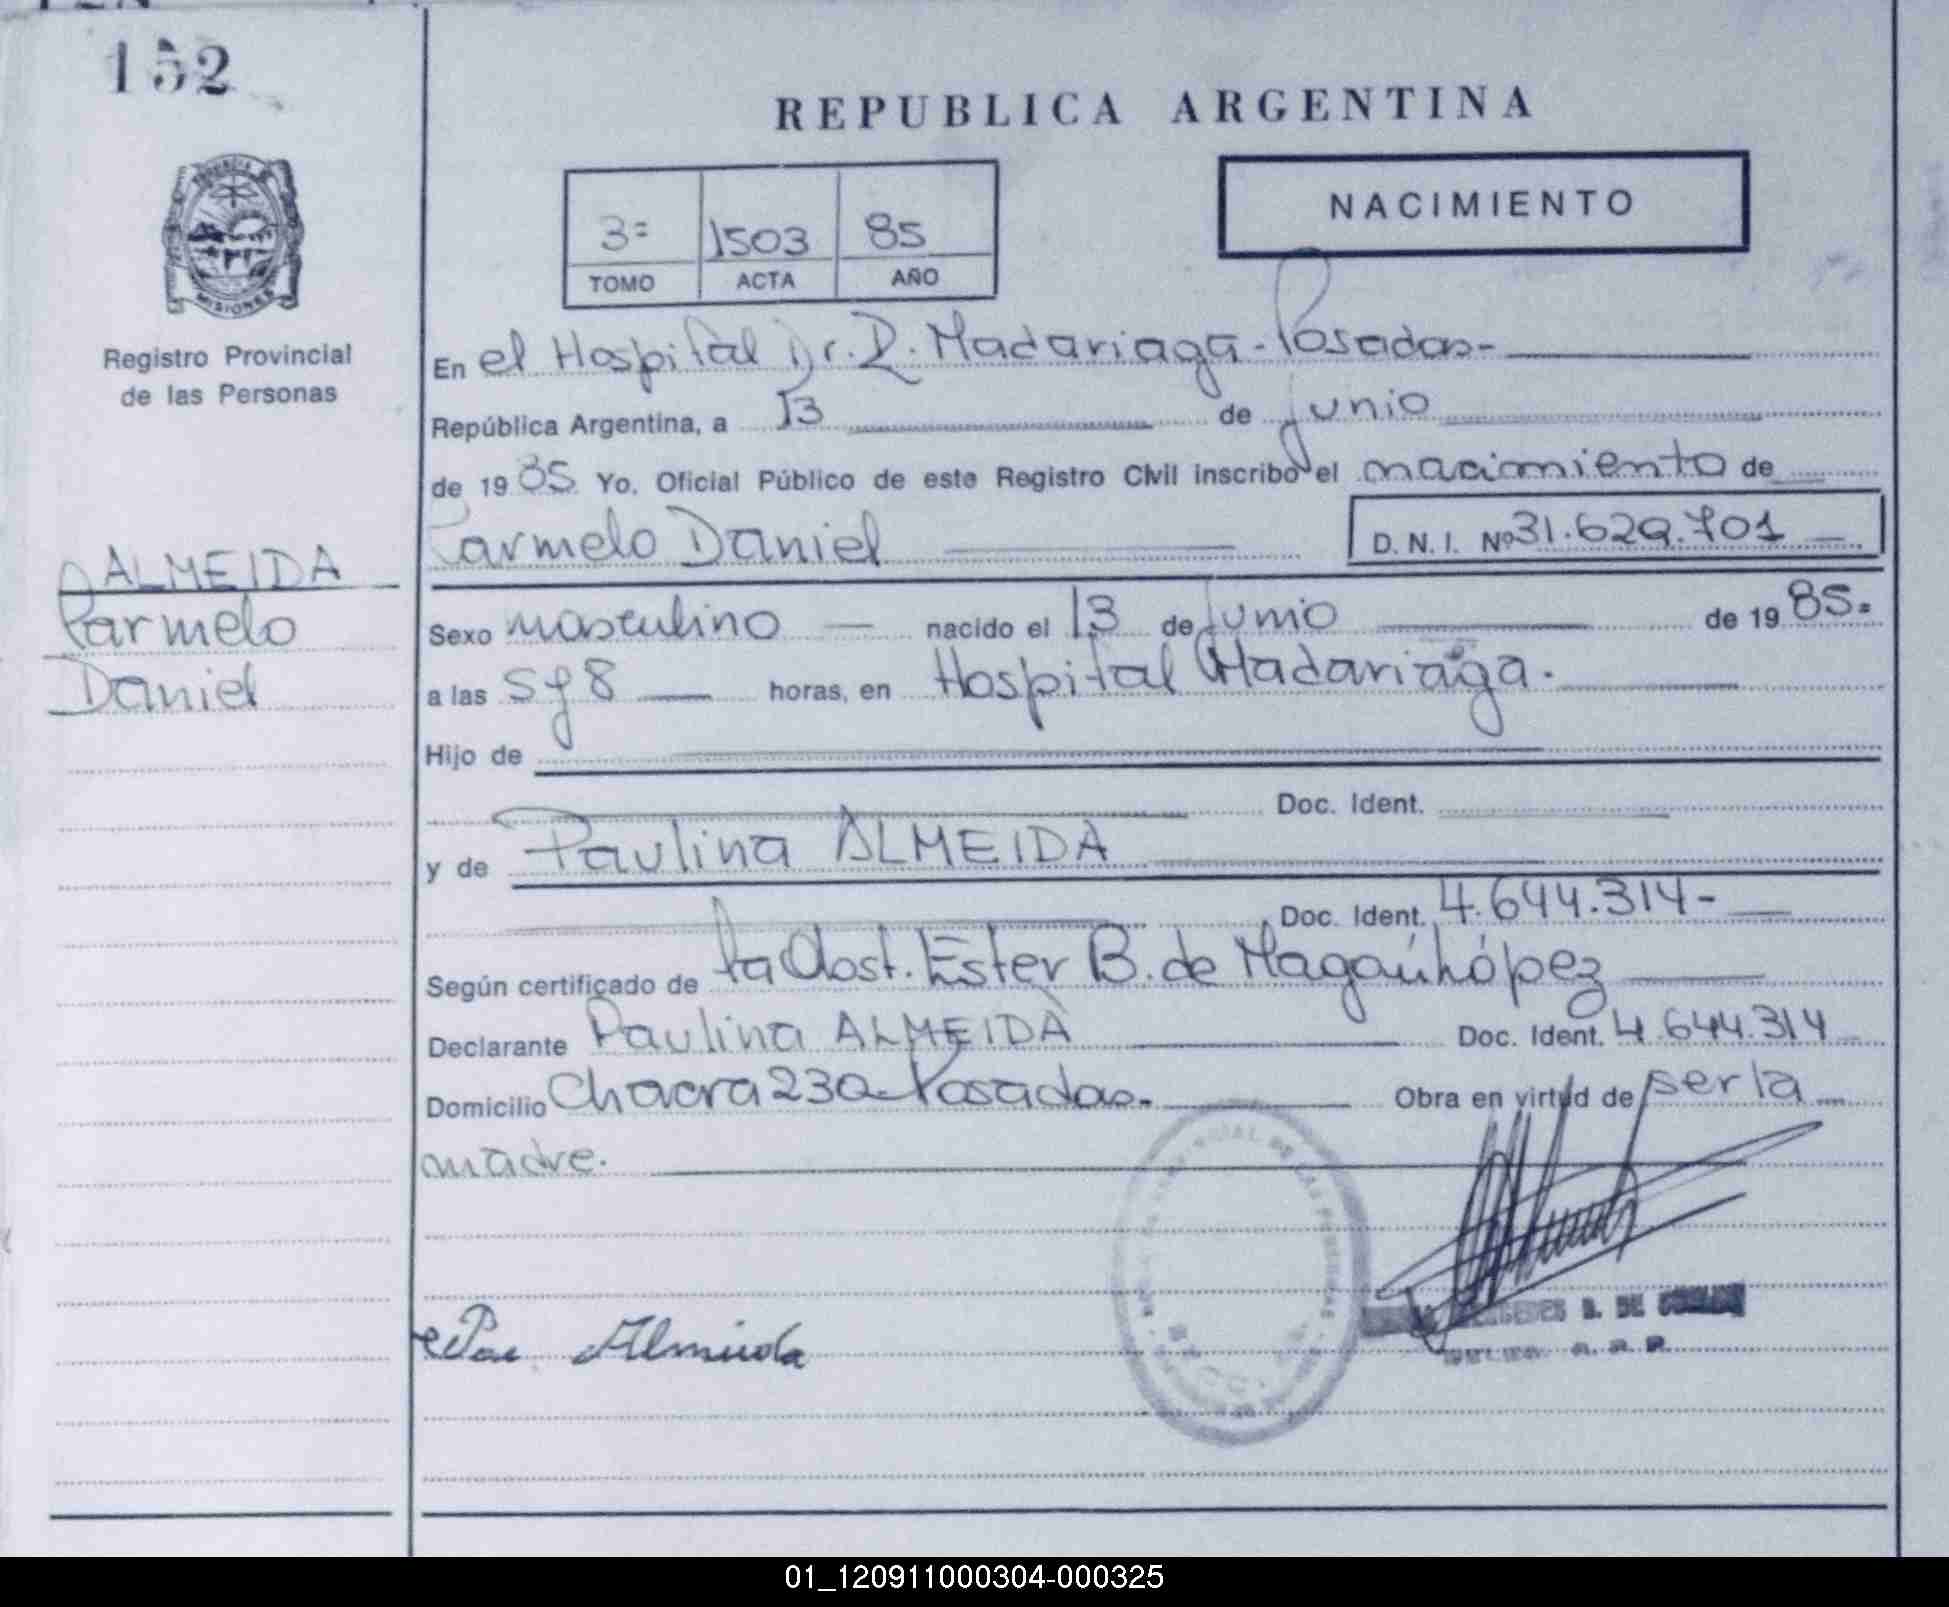 152
REPUBLICA ARGENTINA
NACIMIENTO
3ª 1503 85
TOMO ACTA AÑO
PROVINCIA DE
MISIONES
Registro Provincial
de las Personas
ALMEIDA
Carmelo
Daniel
En el Hospital Dr. R. Madariaga - Posadas-
República Argentina, a 13 de junio
de 1985 Yo, Oficial Público de este Registro Civil inscribo el nacimiento de
Carmelo Daniel D. N. I. Nº 31.629.701
Sexo masculino nacido el 13 de junio de 1985.
a las 5 y 8 horas, en Hospital Madariaga.
Hijo de
Doc. Ident.
y de Paulina ALMEIDA
Doc. Ident. 4.644.314-
Según certificado de la Obst. Ester B. de
Declarante Paulina ALMEIDA Doc. Ident. 4.644.314
Domicilio Chacra 230-Posadas. Obra en virtud de ser la
madre.
Almeida
DE LAS PERSONAS
B. DE
01_120911000304-000325